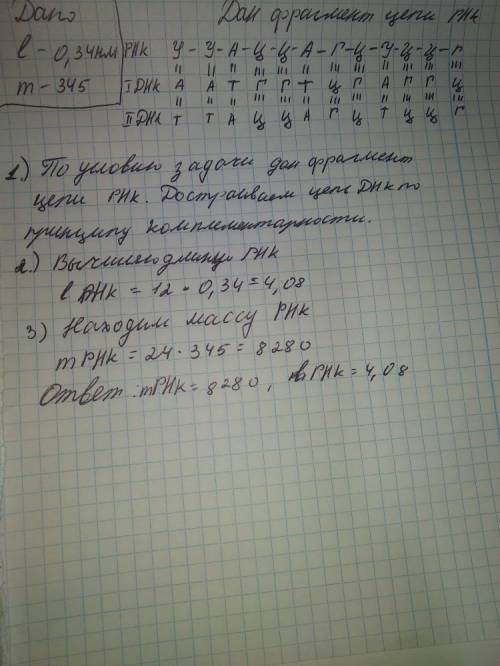 Дано
Дан фрагмент цепи РНК
l - 0,34нм
m - 345
РНК У - У - А - Ц - Ц - А - Г - Ц - У - Ц - Ц - Г
I ДНК А А Т Г Г Т Ц Г А Г Г Ц
II ДНК Т Т А Ц Ц А Г Ц Т Ц Ц Г
1.) По условию задачи дан фрагмент
цепи РНК. Достраиваем цепь ДНК по
принципу комплементарности.
2.) Вычисляю длину
l = 12 · 0,34 = 4,08
3) Находим массу РНК
m РНК = 24 · 345 = 8280
Ответ: m РНК = 8280, РНК = 4,08